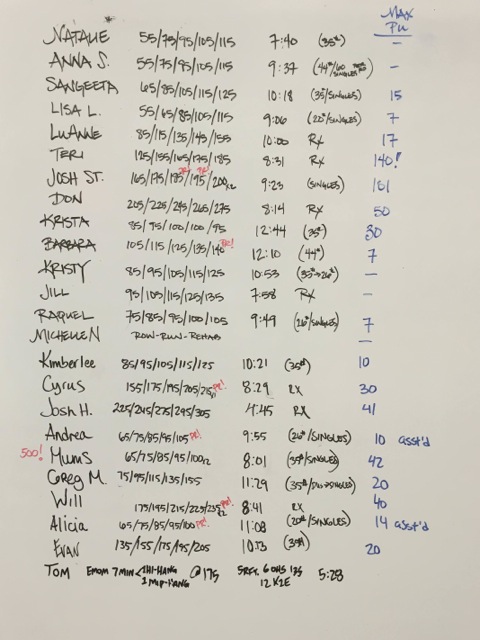 MAX
PU
NATALIE 55/75/95/105/115 7:40 (35#) -
ANNA S. 55/75/95/105/115 9:37 (44#/60 /SINGLES) -
SANGEETA 65/85/105/115/125 10:18 (35#/SINGLES) 15
LISA L. 55/65/85/105/115 9:06 (22#/SINGLES) 7
LUANNE 85/115/135/145/155 10:00 RX 17
TERI 125/155/165/175/185 8:31 RX 140!
JOSH ST. 165/175/185/195/200x2 PR! PR! 9:23 (SINGLES) 101
DON 205/225/245/265/275 8:14 RX 50
KRISTA 85/95/100/100/95 12:44 (35#) 30
BARBARA 105/115/125/135/140 PR! 12:10 (44#) 7
KRISTY 85/95/105/115/125 10:53 (35#→26#) -
JILL 95/105/115/125/135 7:58 RX -
RAQUEL 75/85/95/100/105 9:49 (26#/SINGLES) 7
MICHELLE N ROW-RUN-REHAB -
Kimberlee 85/95/105/115/125 10:21 (35#) 10
Cyrus 155/175/195/205/215 PR! 8:29 RX 30
Josh H. 225/245/275/295/305 4:45 RX 41
Andrea 65/75/85/95/105 PR! 9:55 (26#/SINGLES) 10 asst'd
500! Mums 65/75/85/95/100x2 8:01 (35#/SINGLES) 42
Greg M. 75/95/115/135/155 11:29 (35#/DUs→SINGLES) 20
Will 175/195/215/225/235x2 PR! 8:41 RX 40
Alicia 65/75/85/95/100 PR! 11:08 (20#/SINGLES) 14 asst'd
Evan 135/155/175/195/205 10:53 (35#) 20
TOM EMOM 7 MIN < 1 HI-HANG @175 5RFT, 6 OHS 135 5:28
1 MID-HANG 12 K2E